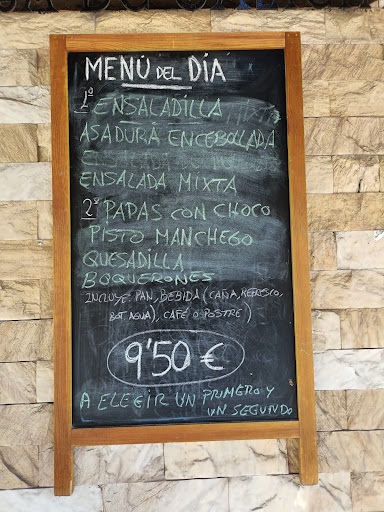 MENÚ DEL DÍA
1º ENSALADILLA
ASADURA ENCEBOLLADA
ENSALADA MIXTA
2º PAPAS CON CHOCO
PISTO MANCHEGO
QUESADILLA
BOQUERONES
INCLUYE PAN, BEBIDA (CAÑA, REFRESCO,
BOT AGUA), CAFÉ O POSTRE)
9'50 €
A ELEGIR UN PRIMERO Y
UN SEGUNDO